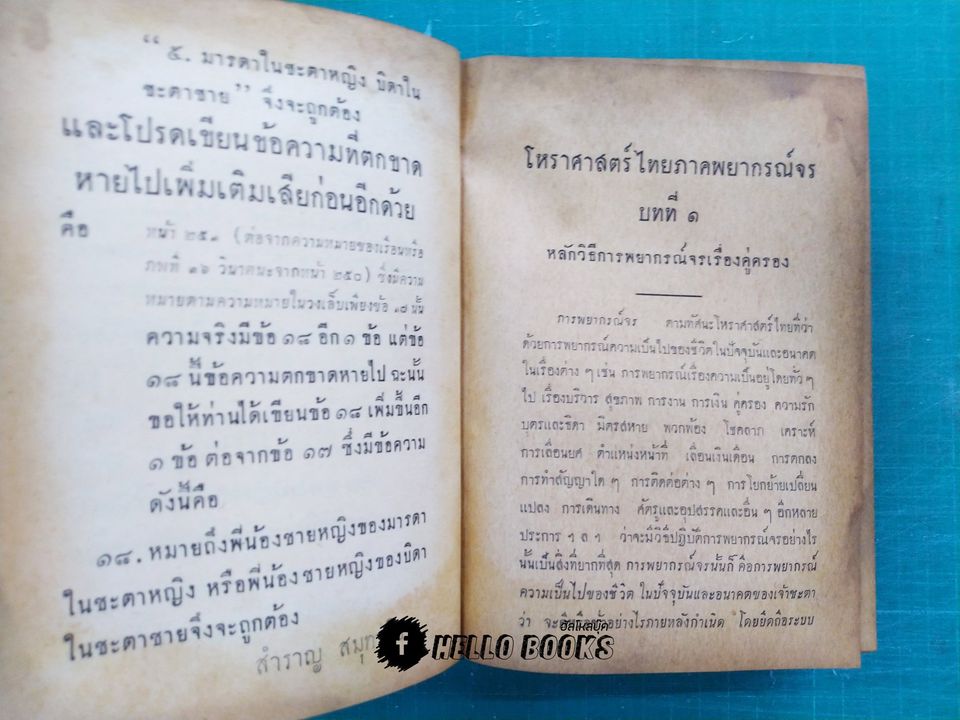 “ ๕. มารดาในชะตาหญิง บิดาใน
ชะตาชาย” จึงจะถูกต้อง
และโปรดเขียนข้อความที่ตกขาด
หายไปเพิ่มเติมเสียก่อนอีกด้วย
คือ
หน้า ๒๕๑ (ต่อจากความหมายของเรือนหรือ
ภพที่ ๑๖ วินาศนะจากหน้า ๒๕๐) ซึ่งมีความ
หมายตามความหมายในวงเล็บเพียงข้อ ๑๗ นั้น
ความจริงมีข้อ ๑๘ อีก ๑ ข้อ แต่ข้อ
๑๘ นี้ข้อความตกขาดหายไป ฉะนั้น
ขอให้ท่านได้เขียนข้อ ๑๘ เพิ่มขึ้นอีก
๑ ข้อ ต่อจากข้อ ๑๗ ซึ่งมีข้อความ
ดังนี้คือ
๑๘. หมายถึงพี่น้องชายหญิงของมารดา
ในชะตาหญิง หรือพี่น้องชายหญิงของบิดา
ในชะตาชายจึงจะถูกต้อง
สำราญ
โหราศาสตร์ไทยภาคพยากรณ์จร
บทที่ ๑
หลักวิธีการพยากรณ์จรเรื่องคู่ครอง
การพยากรณ์จร ตามทัศนะโหราศาสตร์ไทยที่ว่า
ด้วยการพยากรณ์ความเป็นไปของชีวิตในปัจจุบันและอนาคต
ในเรื่องต่าง ๆ เช่น การพยากรณ์เรื่องความเป็นอยู่โดยทั่ว ๆ
ไป เรื่องบริวาร สุขภาพ การงาน การเงิน คู่ครอง ความรัก
บุตรและธิดา มิตรสหาย พวกพ้อง โชคลาภ เคราะห์
การเลื่อนยศ ตำแหน่งหน้าที่ เลื่อนเงินเดือน การตกลง
การทำสัญญาใด ๆ การติดต่อต่าง ๆ การโยกย้ายเปลี่ยน
แปลง การเดินทาง ศัตรูและอุปสรรคและอื่น ๆ อีกหลาย
ประการ ฯ ล ฯ ว่าจะมีวิธีปฏิบัติการพยากรณ์จรอย่างไร
นั้นเป็นสิ่งที่ยากที่สุด การพยากรณ์จรนั้นก็ คือการพยากรณ์
ความเป็นไปของชีวิต ในปัจจุบันและอนาคตของเจ้าชะตา
ว่า อย่างไรภายหลังกำเนิด โดยยึดถือระบบ
ฮัลโหลบุ๊ค
f HELLO BOOKS